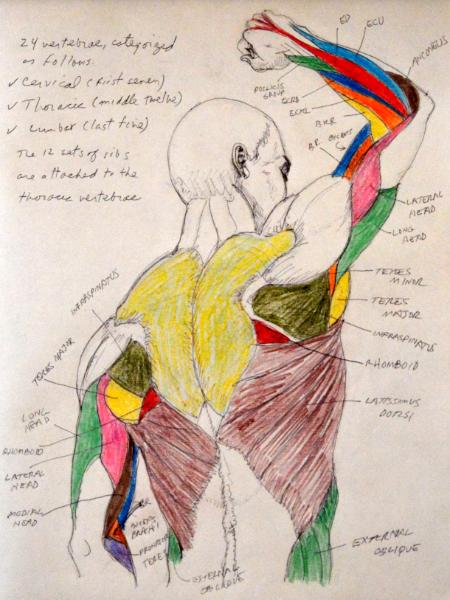 24 vertebrae, categorized
as follows:
✓ Cervical (first seven)
✓ Thoracic (middle twelve)
✓ Lumbar (last five)
The 12 sets of ribs
are attached to the
thoracic vertebrae
ED
ECU
ANCONEUS
POLLICIS
GROUP
ECRB
ECRL
BR
LATERAL
HEAD
LONG
HEAD
TERES
MINOR
TERES
MAJOR
INFRASPINATUS
RHOMBOID
LATISSIMUS
DORSI
EXTERNAL
OBLIQUE
INFRASPINATUS
TERES MAJOR
LONG
HEAD
RHOMBOID
LATERAL
HEAD
MEDIAL
HEAD
BR
PRONATOR
TERES
EXTERNAL
OBLIQUE